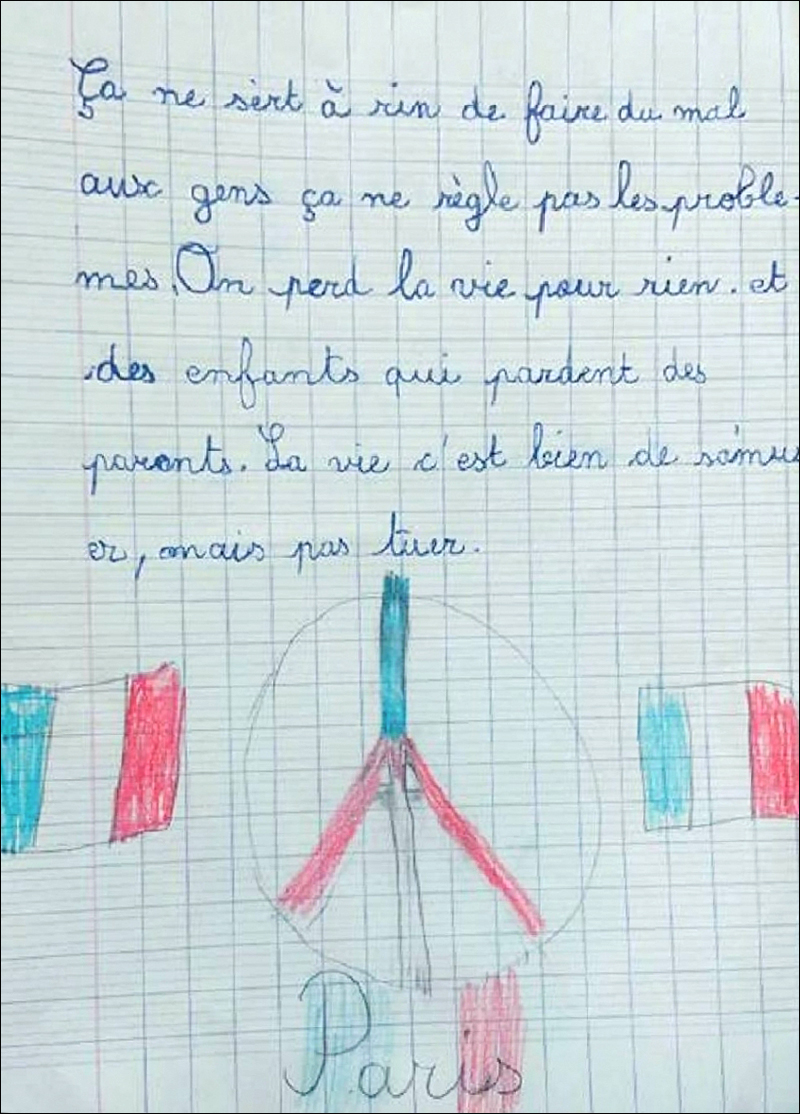 Ça ne sert à rin de faire du mal
aux gens ça ne règle pas les proble-
mes. On perd la vie pour rien. et
des enfants qui pardent des
parents. La vie c'est bien de s'amus
er, mais pas tuer.
Paris